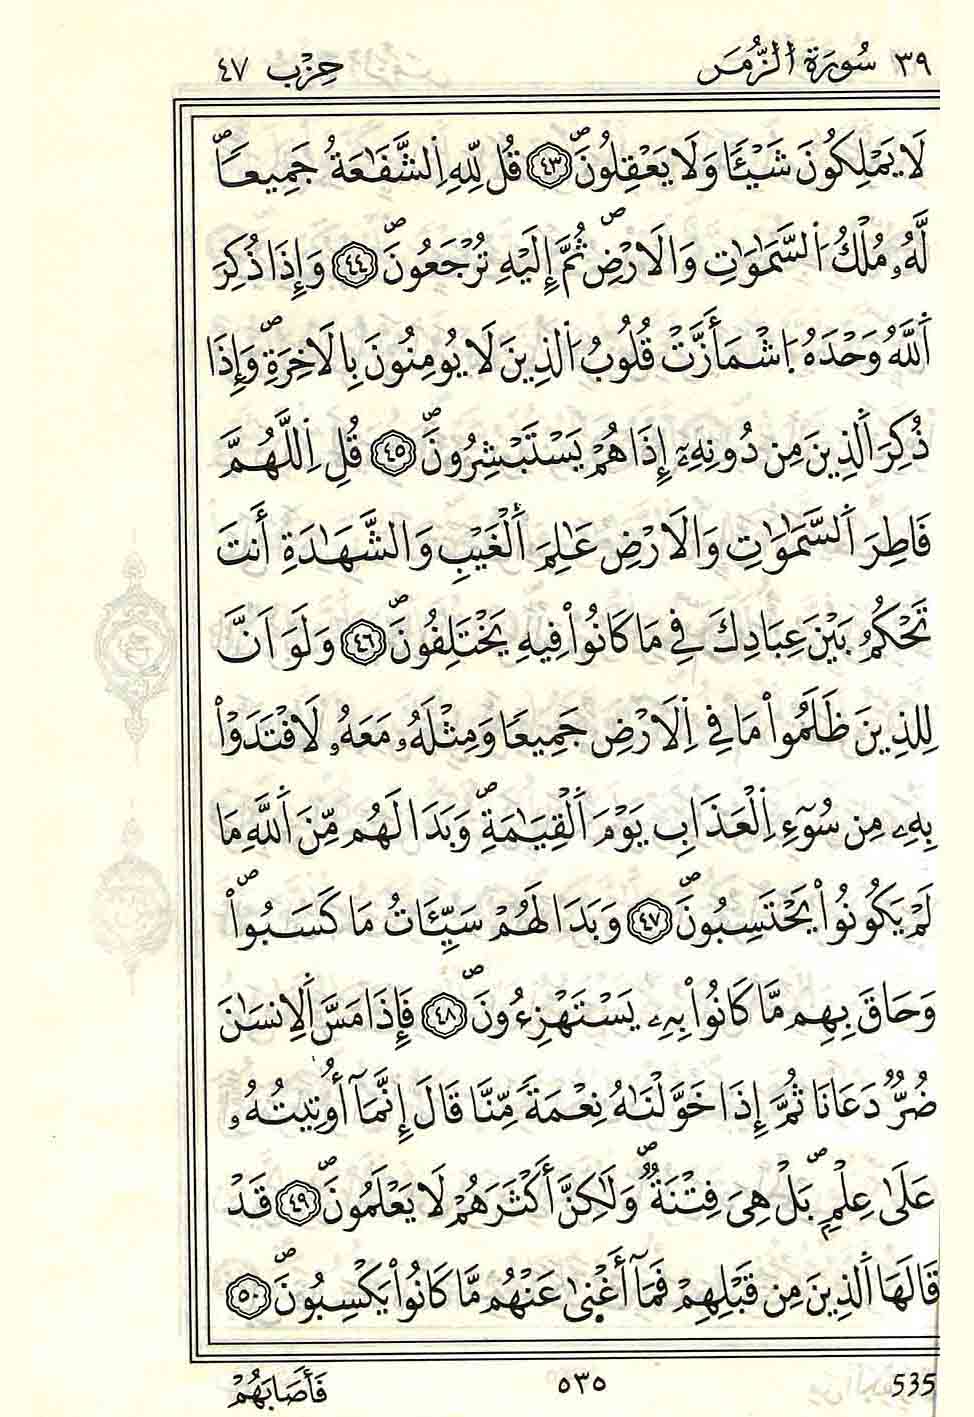 ٣٩ سُورَةُ الزُّمَرِ حِزْب ٤٧
لَا يَمْلِكُونَ شَيْـًٔا وَلَا يَعْقِلُونَۖ ٤٣ قُل لِّلهِ اِ۬لشَّفَٰعَةُ جَمِيعاٗۖ
لَّهُۥ مُلْكُ اُ۬لسَّمَٰوَٰتِ وَالَارْضِۖ ثُمَّ إِلَيْهِ تُرْجَعُونَۖ ٤٤ وَإِذَا ذُكِرَ
اَ۬للَّهُ وَحْدَهُ اُ۪شْمَأَزَّتْ قُلُوبُ اُ۬لذِينَ لَا يُومِنُونَ بِالَاخِرَةِۖ وَإِذَا
ذُكِرَ اَ۬لذِينَ مِن دُونِهِۦٓ إِذَا هُمْ يَسْتَبْشِرُونَۖ ٤٥ قُلِ اِ۬للَّهُمَّ
فَاطِرَ اَ۬لسَّمَٰوَٰتِ وَالَارْضِ عَٰلِمَ اَ۬لْغَيْبِ وَالشَّهَٰدَةِ أَنتَ
تَحْكُمُ بَيْنَ عِبَادِكَ فِے مَا كَانُواْ فِيهِ يَخْتَلِفُونَۖ ٤٦ وَلَوَ اَنَّ
لِلذِينَ ظَلَمُواْ مَا فِے اِ۬لَارْضِ جَمِيعاٗ وَمِثْلَهُۥ مَعَهُۥ لَافْتَدَوْاْ
بِهِۦ مِن سُوٓءِ اِ۬لْعَذَابِ يَوْمَ اَ۬لْقِيَٰمَةِۖ وَبَدَا لَهُم مِّنَ اَ۬للَّهِ مَا
لَمْ يَكُونُواْ يَحْتَسِبُونَۖ ٤٧ وَبَدَا لَهُمْ سَيِّـَٔاتُ مَا كَسَبُواْۖ
وَحَاقَ بِهِم مَّا كَانُواْ بِهِۦ يَسْتَهْزِءُونَۖ ٤٨ فَإِذَا مَسَّ اَ۬لِانسَٰنَ
ضُرّٞ دَعَانَا ثُمَّ إِذَا خَوَّلْنَٰهُ نِعْمَةٗ مِّنَّا قَالَ إِنَّمَآ أُوتِيتُهُۥ
عَلَىٰ عِلْمِۢۖ بَلْ هِيَ فِتْنَةٞۖ وَلَٰكِنَّ أَكْثَرَهُمْ لَا يَعْلَمُونَۖ ٤٩ قَدْ
قَالَهَا اَ۬لذِينَ مِن قَبْلِهِمْ فَمَآ أَغْن۪ىٰ عَنْهُم مَّا كَانُواْ يَكْسِبُونَۖ ٥٠
535 ٥٣٥ فَأَصَابَهُمْ